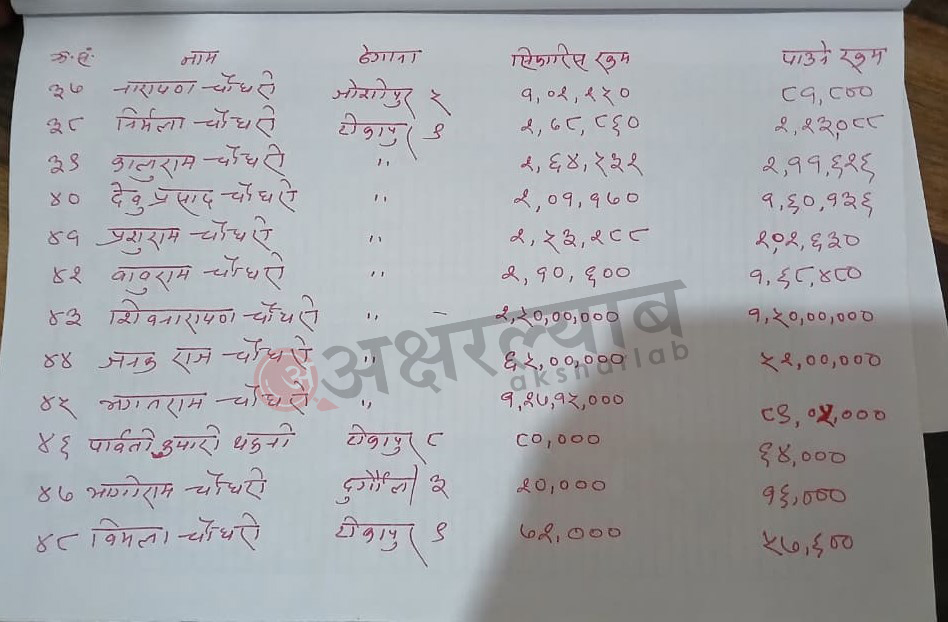 क्र.सं. नाम ठेगाना सिफारिस रकम पाउने रकम
३७ नारायण चौधरी जोशीपुर ५ १,०२,२५० ८१,८००
३८ निर्मला चौधरी टीकापुर ९ २,७८,८६० २,२३,०८८
३९ कालुराम चौधरी " २,६४,५३२ २,११,६२६
४० देवु प्रसाद चौधरी " २,०१,१७० १,६०,१३६
४१ प्रशुराम चौधरी " २,५३,२८८ २,०२,६३०
४२ वावुराम चौधरी " २,१०,६०० १,६८,४८०
४३ शिवनारायण चौधरी " - २,५०,००,००० १,५०,००,०००
४४ जनक राज चौधरी " ६५,००,००० ५२,००,०००
४५ भगतराम चौधरी " १,२७,१५,०००
४६ पार्वती कुमारी थकुनी टीकापुर ८ ८०,००० ६४,०००
४७ भागीराम चौधरी दुर्गौली ३ २०,००० १६,०००
४८ विमला चौधरी टीकापुर ९ ७२,००० ५७,६००
अक्षरल्याब
aksharlab